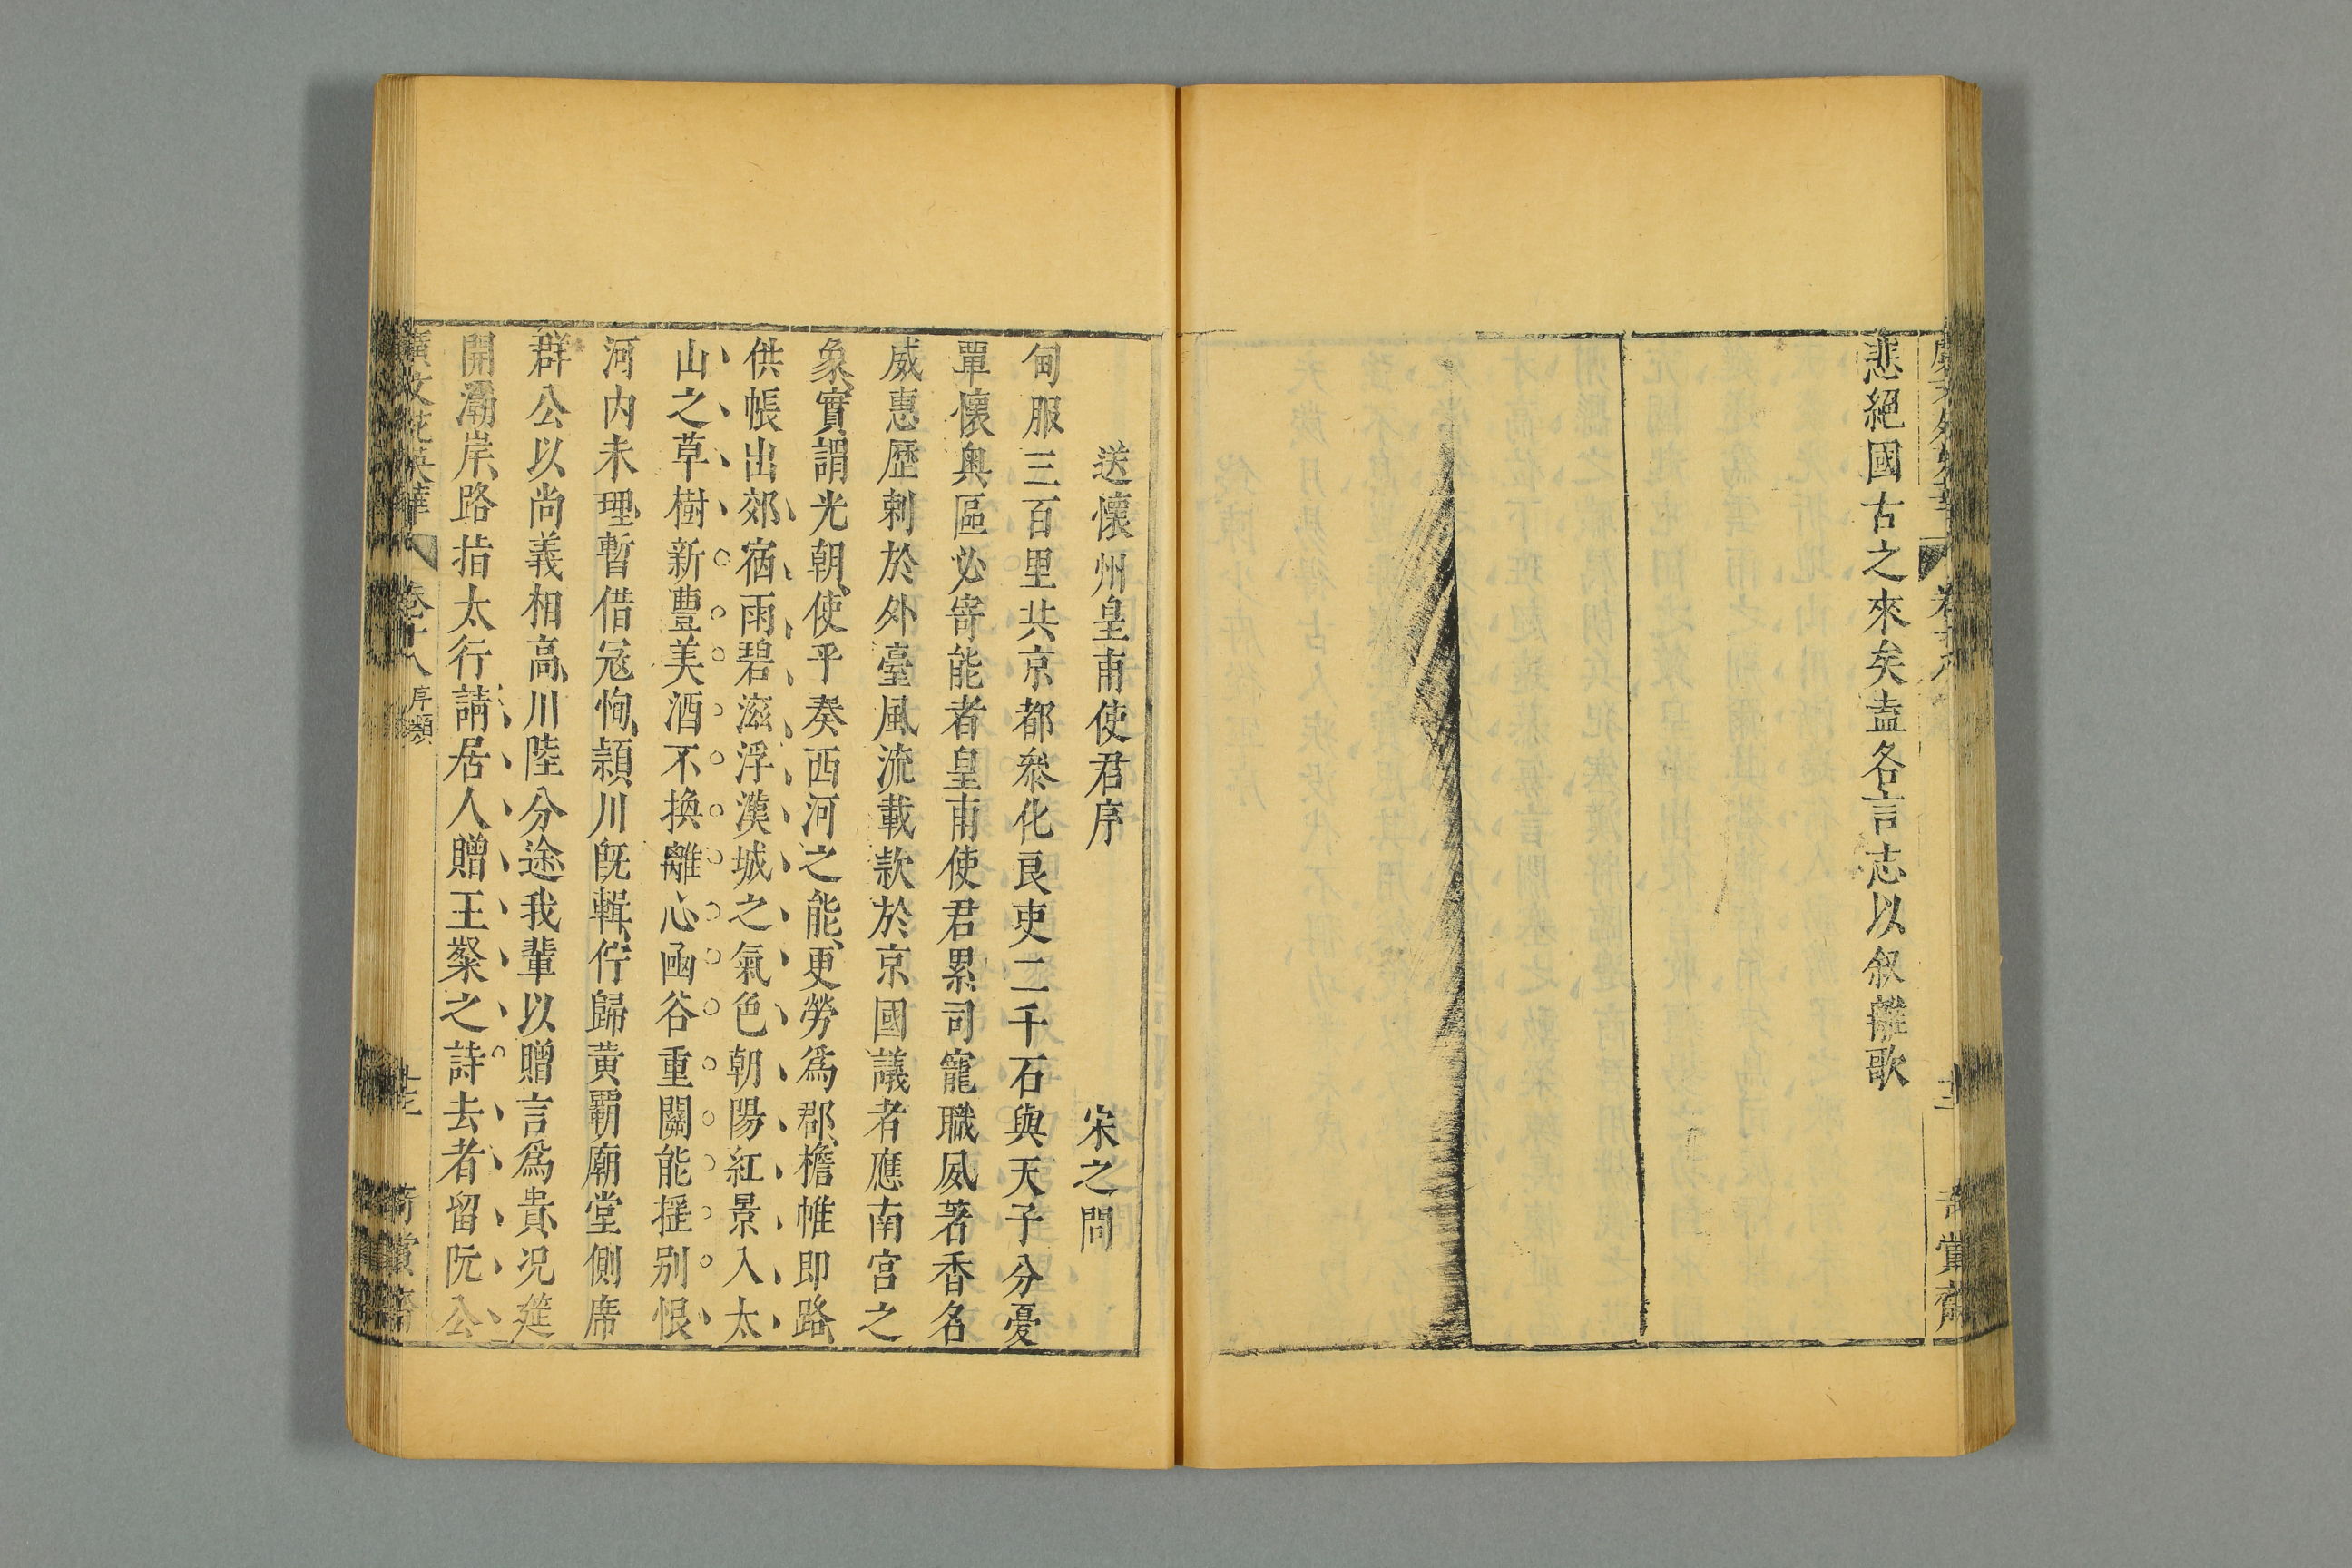 悲絕國古之來矣盍各言志以叙離歌
送懷州皇甫使君序
宋之問
甸服三百里共京都叅化良吏二千石與天子分憂
覃懷奥區必寄能者皇甫使君累司寵職夙著香名
威惠歷刺於外臺風流載款於京國議者應南宫之
象實謂光朝使乎奏西河之能更勞爲郡襜帷即路
供帳出郊宿雨碧滋浮漢城之氣色朝陽紅景入太
山之草樹新豐美酒不換離心函谷重關能摇别恨
河内未理暫借寇恂潁川旣輯佇歸黄覇廟堂側席
群公以尚義相高川陸分途我輩以贈言爲貴况筵
開灞岸路指太行請居人贈王粲之詩去者留阮公
廣文苑英華
卷十八
序類